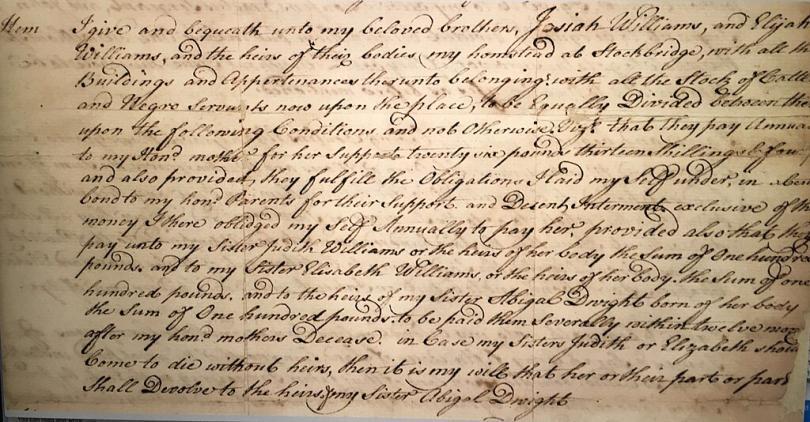 Item I give and bequeath unto my beloved brothers, Josiah Williams, and Elijah
Williams, and the heirs of their bodies my homstead at Stockbridge, with all the
Buildings and Appertenances thereunto belonging with all the Stock of Cattle
and Negro Servants now upon the place, to be Equally Divided between them
upon the following Conditions and not Otherwise, that they pay Annua
to my Hond mother for her Support twenty six pounds thirteen Shillings & four
and also provided, they fulfill the Obligations I laid my Self under, in a
bond to my hond Parents for their Support and Desent Interment exclusive of the
money I there obliged my Self Annually to pay her, provided also that they
pay unto my Sister Judith Williams or the heirs of her body the Sum of One hundred
pounds, and to my Sister Elisabeth Williams, or the heirs of her body the Sum of one
hundred pounds. and to the heirs of my Sister Abigal Dwight born of her body
the Sum of One hundred pounds, to be paid them Severally within twelve mon
after my hond mothers Decease. in Case my Sisters Judith or Elizabeth shou
Come to die without heirs, then it is my will that her or their part or part
Shall Devolve to the heirs of my Sister Abigal Dwight